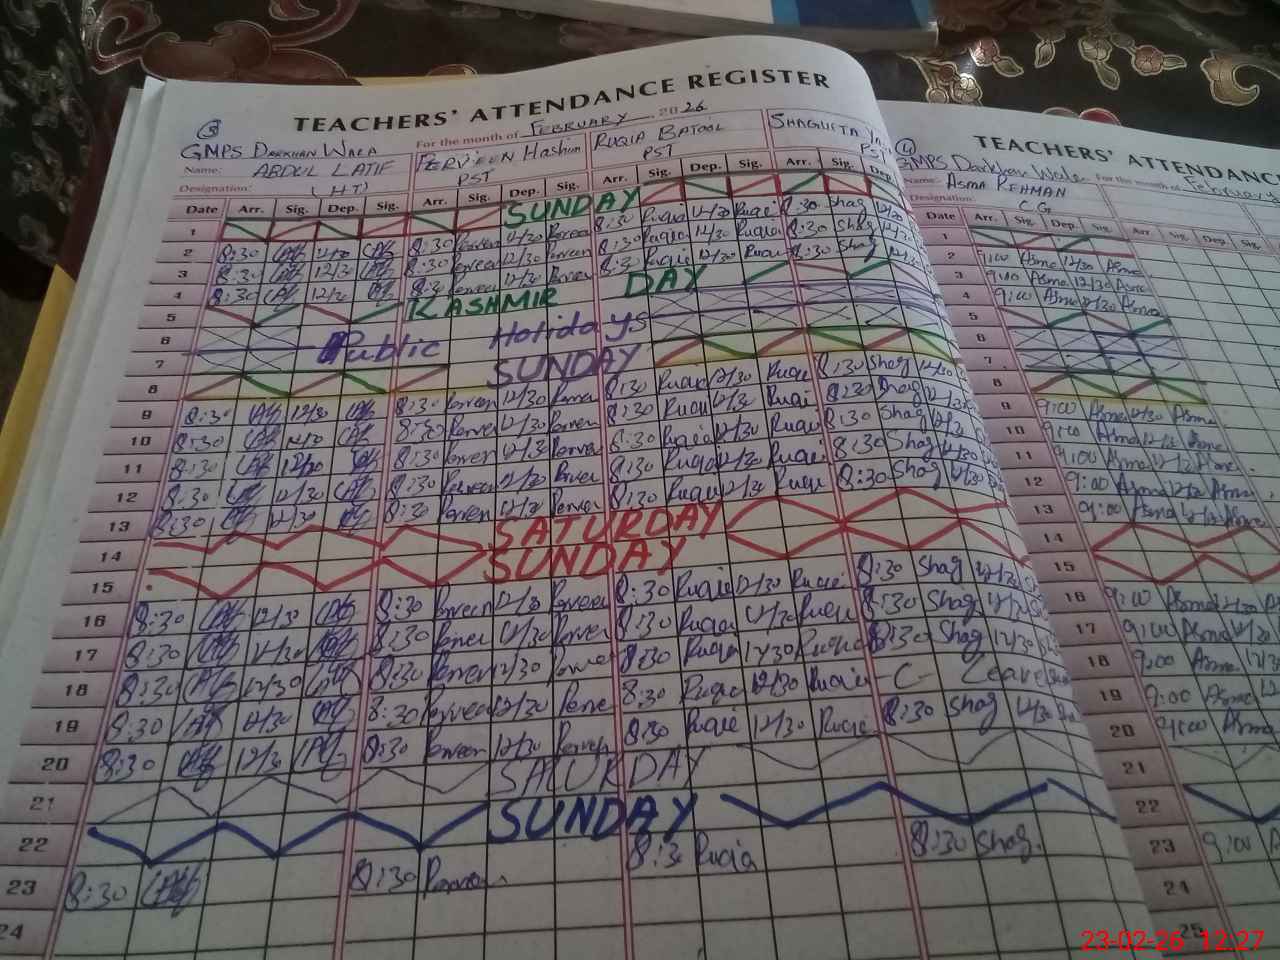 TEACHERS' ATTENDANCE REGISTER
3
For the month of FEBRUARY 2026
GMPS DARKHAN WALA
Name: ABDUL LATIF
PERVEEN Hashim
RUQIA BATOOL
SHAGUFTA
Designation: (HT)
PST
PST
PST
Date Arr. Sig. Dep. Sig. Arr. Sig. Dep. Sig. Arr. Sig. Dep. Sig. Arr. Sig. Dep.
1 SUNDAY
2 8:30 12/30 8:30 Perveen 12/30 Perveen 8:30 Ruqia 12/30 Ruqia 8:30 Shag 12/30
3 8:30 12/30 8:30 Perveen 12/30 Perveen 8:30 Ruqia 12/30 Ruqia 8:30 Shag 12/30
4 8:30 12/30 8:30 Perveen 12/30 Perveen 8:30 Ruqia 12/30 Ruqia 8:30 Shag 12/30
5 KASHMIR DAY
6 Public Holidays
7
8 SUNDAY
9 8:30 12/30 8:30 Perveen 12/30 Perveen 8:30 Ruqia 12/30 Ruqia 8:30 Shag 12/30
10 8:30 12/30 8:30 Perveen 12/30 Perveen 8:30 Ruqia 12/30 Ruqia 8:30 Shag 12/30
11 8:30 12/30 8:30 Perveen 12/30 Perveen 8:30 Ruqia 12/30 Ruqia 8:30 Shag 12/30
12 8:30 12/30 8:30 Perveen 12/30 Perveen 8:30 Ruqia 12/30 Ruqia 8:30 Shag 12/30
13 8:30 12/30 8:30 Perveen 12/30 Perveen 8:30 Ruqia 12/30 Ruqia 8:30 Shag 12/30
14 SATURDAY
15 SUNDAY
16 8:30 12/30 8:30 Perveen 12/30 Perveen 8:30 Ruqia 12/30 Ruqia 8:30 Shag 12/30
17 8:30 12/30 8:30 Perveen 12/30 Perveen 8:30 Ruqia 12/30 Ruqia 8:30 Shag 12/30
18 8:30 12/30 8:30 Perveen 12/30 Perveen 8:30 Ruqia 12/30 Ruqia 8:30 Shag 12/30
19 8:30 12/30 8:30 Perveen 12/30 Perveen 8:30 Ruqia 12/30 Ruqia C- Leave
20 8:30 12/30 8:30 Perveen 12/30 Perveen 8:30 Ruqia 12/30 Ruqia 8:30 Shag 12/30
21 SATURDAY
22 SUNDAY
23 8:30 8:30 Perveen 8:3 Ruqia 8:30 Shag.
24
TEACHERS' ATTENDANCE
4
GMPS Darkhan Wala For the month of February
Name: ASMA REHMAN
Designation: C G
Date Arr. Sig. Dep. Sig. Arr. Sig. Dep. Sig.
1
2 9:00 Asma 12/30 Asma
3 9:00 Asma 12/30 Asma
4 9:00 Asma 12/30 Asma
5
6
7
8
9 9:00 Asma 12/30 Asma
10 9:00 Asma 12/30 Asma
11 9:00 Asma 12/30 Asma
12 9:00 Asma 12/30 Asma
13 9:00 Asma 12/30 Asma
14
15
16 9:00 Asma 12/30
17 9:00 Asma 12/30
18 9:00 Asma 12/30
19 9:00 Asma
20 9:00 Asma
21
22
23 9:00
24
25
23-02-26 12:27